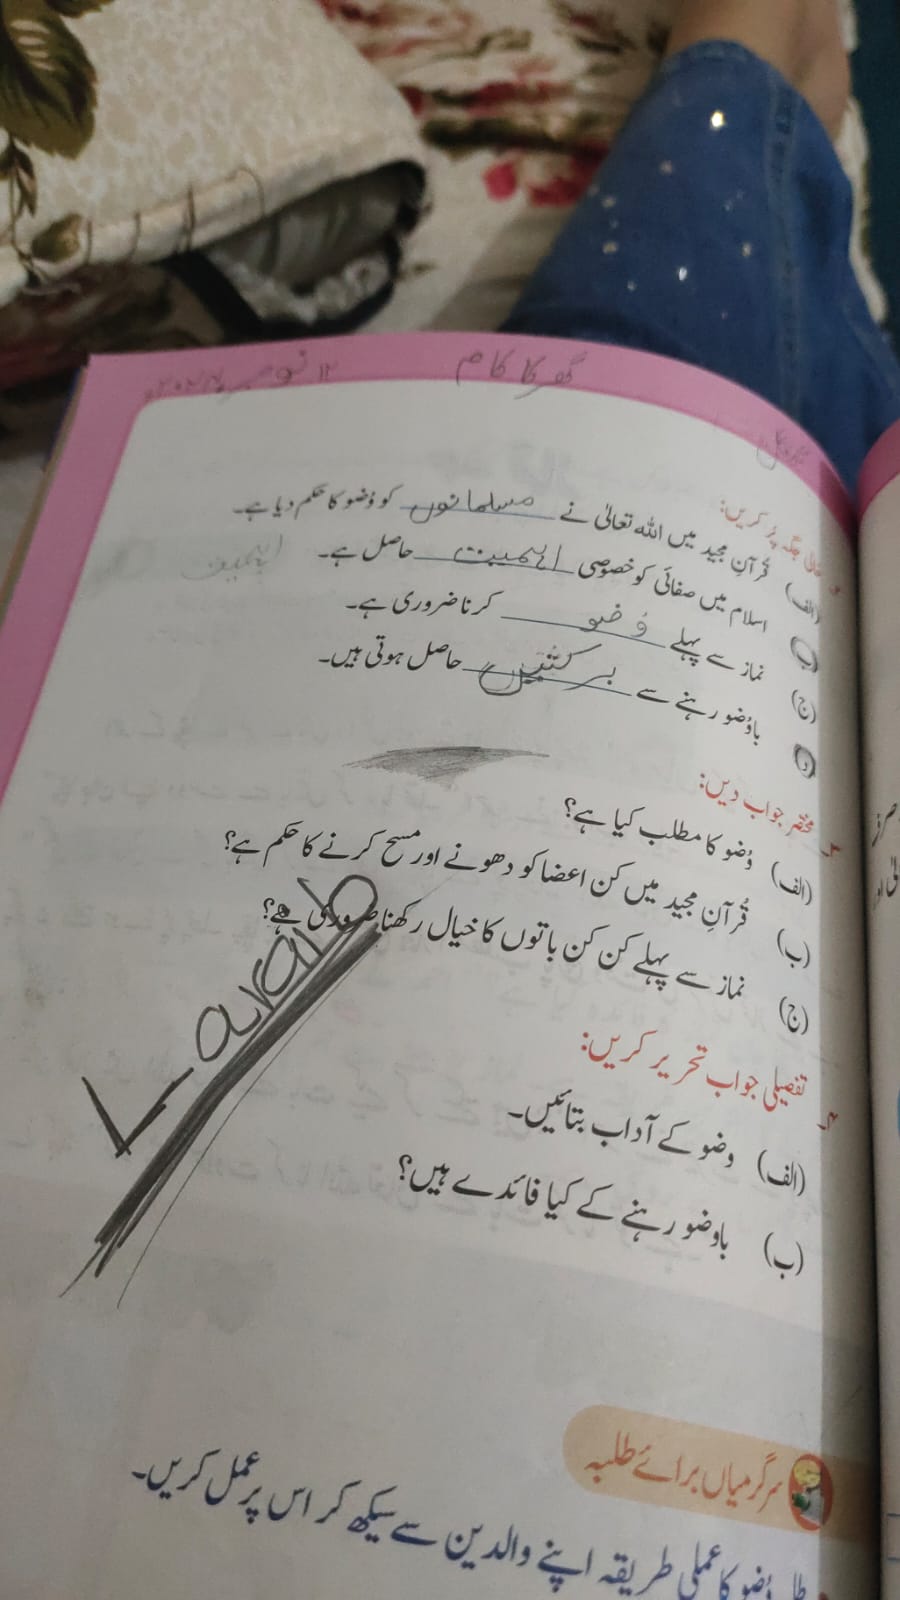 گھر کا کام
۱۲ نومبر
خالی جگہ پُر کریں:
(الف) قُرآنِ مجید میں اللہ تعالیٰ نے مسلمانوں کو وُضو کا حکم دیا ہے۔
(ب) اسلام میں صفائی کو خصوصی اہمیت حاصل ہے۔
اہمیت
(ج) نماز سے پہلے وُضو کرنا ضروری ہے۔
(د) باوُضو رہنے سے برکتیں حاصل ہوتی ہیں۔
مختصر جواب دیں:
(الف) وُضو کا مطلب کیا ہے؟
(ب) قُرآنِ مجید میں کن اعضا کو دھونے اور مسح کرنے کا حکم ہے؟
(ج) نماز سے پہلے کن کن باتوں کا خیال رکھنا ضروری ہے؟
Laraib
تفصیلی جواب تحریر کریں:
(الف) وضو کے آداب بتائیں۔
(ب) باوضو رہنے کے کیا فائدے ہیں؟
سرگرمیاں برائے طلبہ
وُضو کا عملی طریقہ اپنے والدین سے سیکھ کر اس پر عمل کریں۔